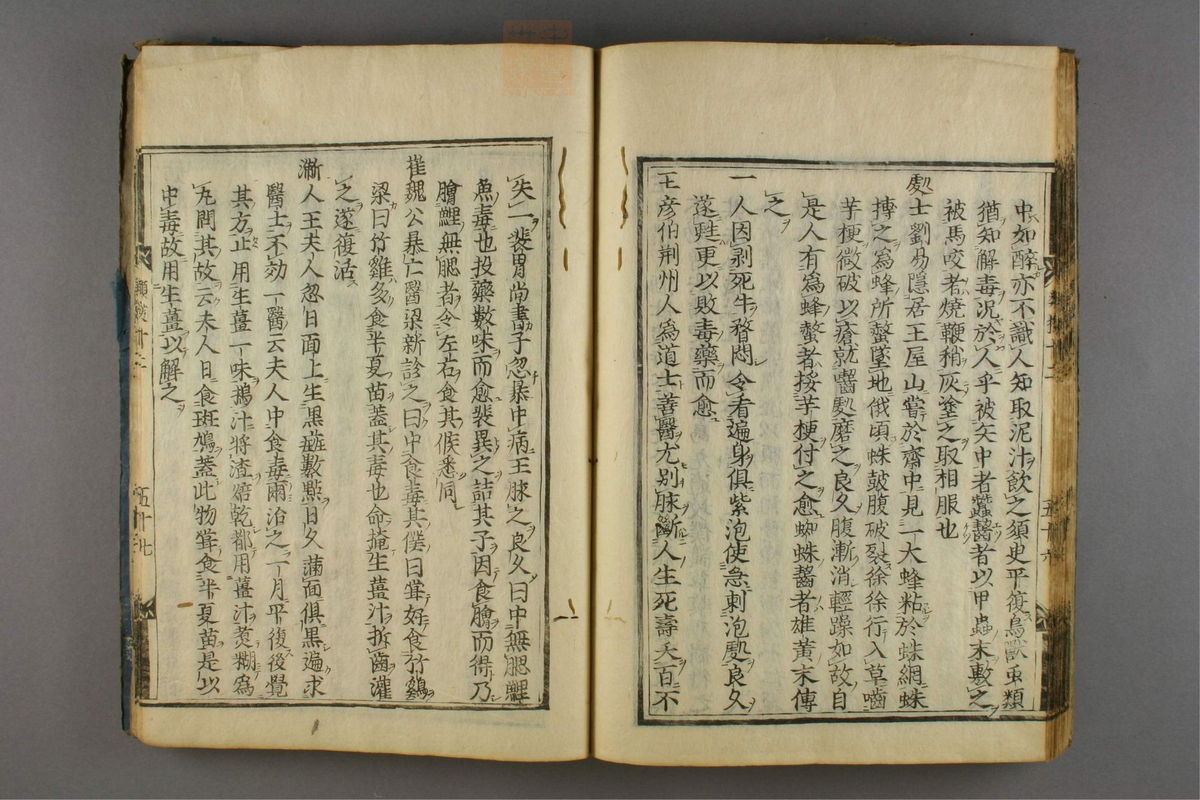 中如醉亦不識人知取泥汁飲之須臾平復鳥獸虫類
猶知解毒況於人乎被矢中者蠶齧者以甲蟲末敷之
被馬咬者燒鞭稍灰塗之取相服也
處士劉易隱居王屋山嘗於齋中見一大蜂粘於蛛網蛛
搏之為蜂所螫墜地俄頃蛛鼓腹破裂徐徐行入草嚙
芋梗微破以瘡就嚙處磨之良久腹漸消輕躁如故自
是人有為蜂螫者挼芋梗付之愈蜘蛛齧者雄黃末傅
之
一人因剥死牛瞀悶令看遍身俱紫泡使急刺泡處良久
遂甦更以敗毒藥而愈
王彦伯荆州人為道士善醫尤別脉斷人生死壽夭百不
失一裴胄尚書子忽暴中病王脉之良久曰中無腮鯉
魚毒也投藥數味而愈裴異之詰其子因食膾而得乃
膾鯉無腮者令左右食其候悉同
崔魏公暴亡醫梁新診之曰中食毒其僕曰嘗好食竹鷄
梁曰竹雞多食半夏苗蓋其毒也命掩生薑汁拆齒灌
之遂復活
浙人王夫人忽日面上生黑斑數點日久滿面俱黑遍求
醫士不効一醫云夫人中食毒爾治之一月平復後覺
其方止用生薑一味搗汁將渣焙乾都用薑汁煮糊為
丸問其故云夫人日食斑鳩蓋此物嘗食半夏苗是以
中毒故用生薑以解之
五十七